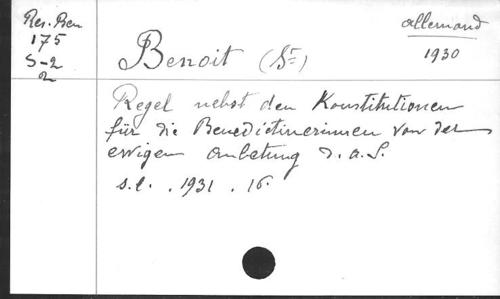 Res. Ben
175
S-2
2
allemand
1930
Benoit (St)
Regel nebst den Konstitutionen
für die Benedictinerinnen von der
ewigen Anbetung d. a. S.
s.l. . 1931 . 16.